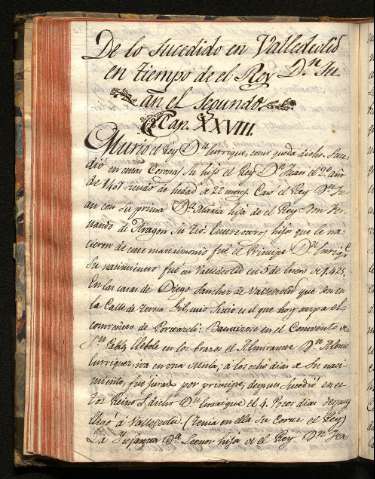 De lo sucedido en Valledolid
en tiempo de el Rey Dn Ju
an el Segundo.
Cap. XXVIII.
Murio el Rey Dn Enrrique, como queda dicho. Suce
dió en esta Corona su hijo el Rey Dn Juan el 2º año
de 1407 siendo de hedad de 22 meses. Casó el Rey Dn Ju
an con su prima Dª Maria hija de el Rey Don Fer
nando de Aragon su tio. Hijo que le na
cieron de este matrimonio fue el Principe Dn Enrriqe
Su nacimiento fue en Valledolid en 5 de Enero de 1425,
En las casas de Diego Sanchez de Valledolid que son en
la Calle de Sitio el que hoy ocupa el
convento de Bautizose en el Convento de
Sn Pablo en los brazos el Almirante Dn Alonso
Enrriquez iva en una Mula; a los ocho dias de su naci
miento, fue jurado por principe, despues sucedió en es
tos Reinos Dn Enrrique el 4. Pocos dias despues
llegó a Valledolid (tenia en ella su Corte el Rey)
La Infanta Dª Leonor hija de el Rey Dn Fer